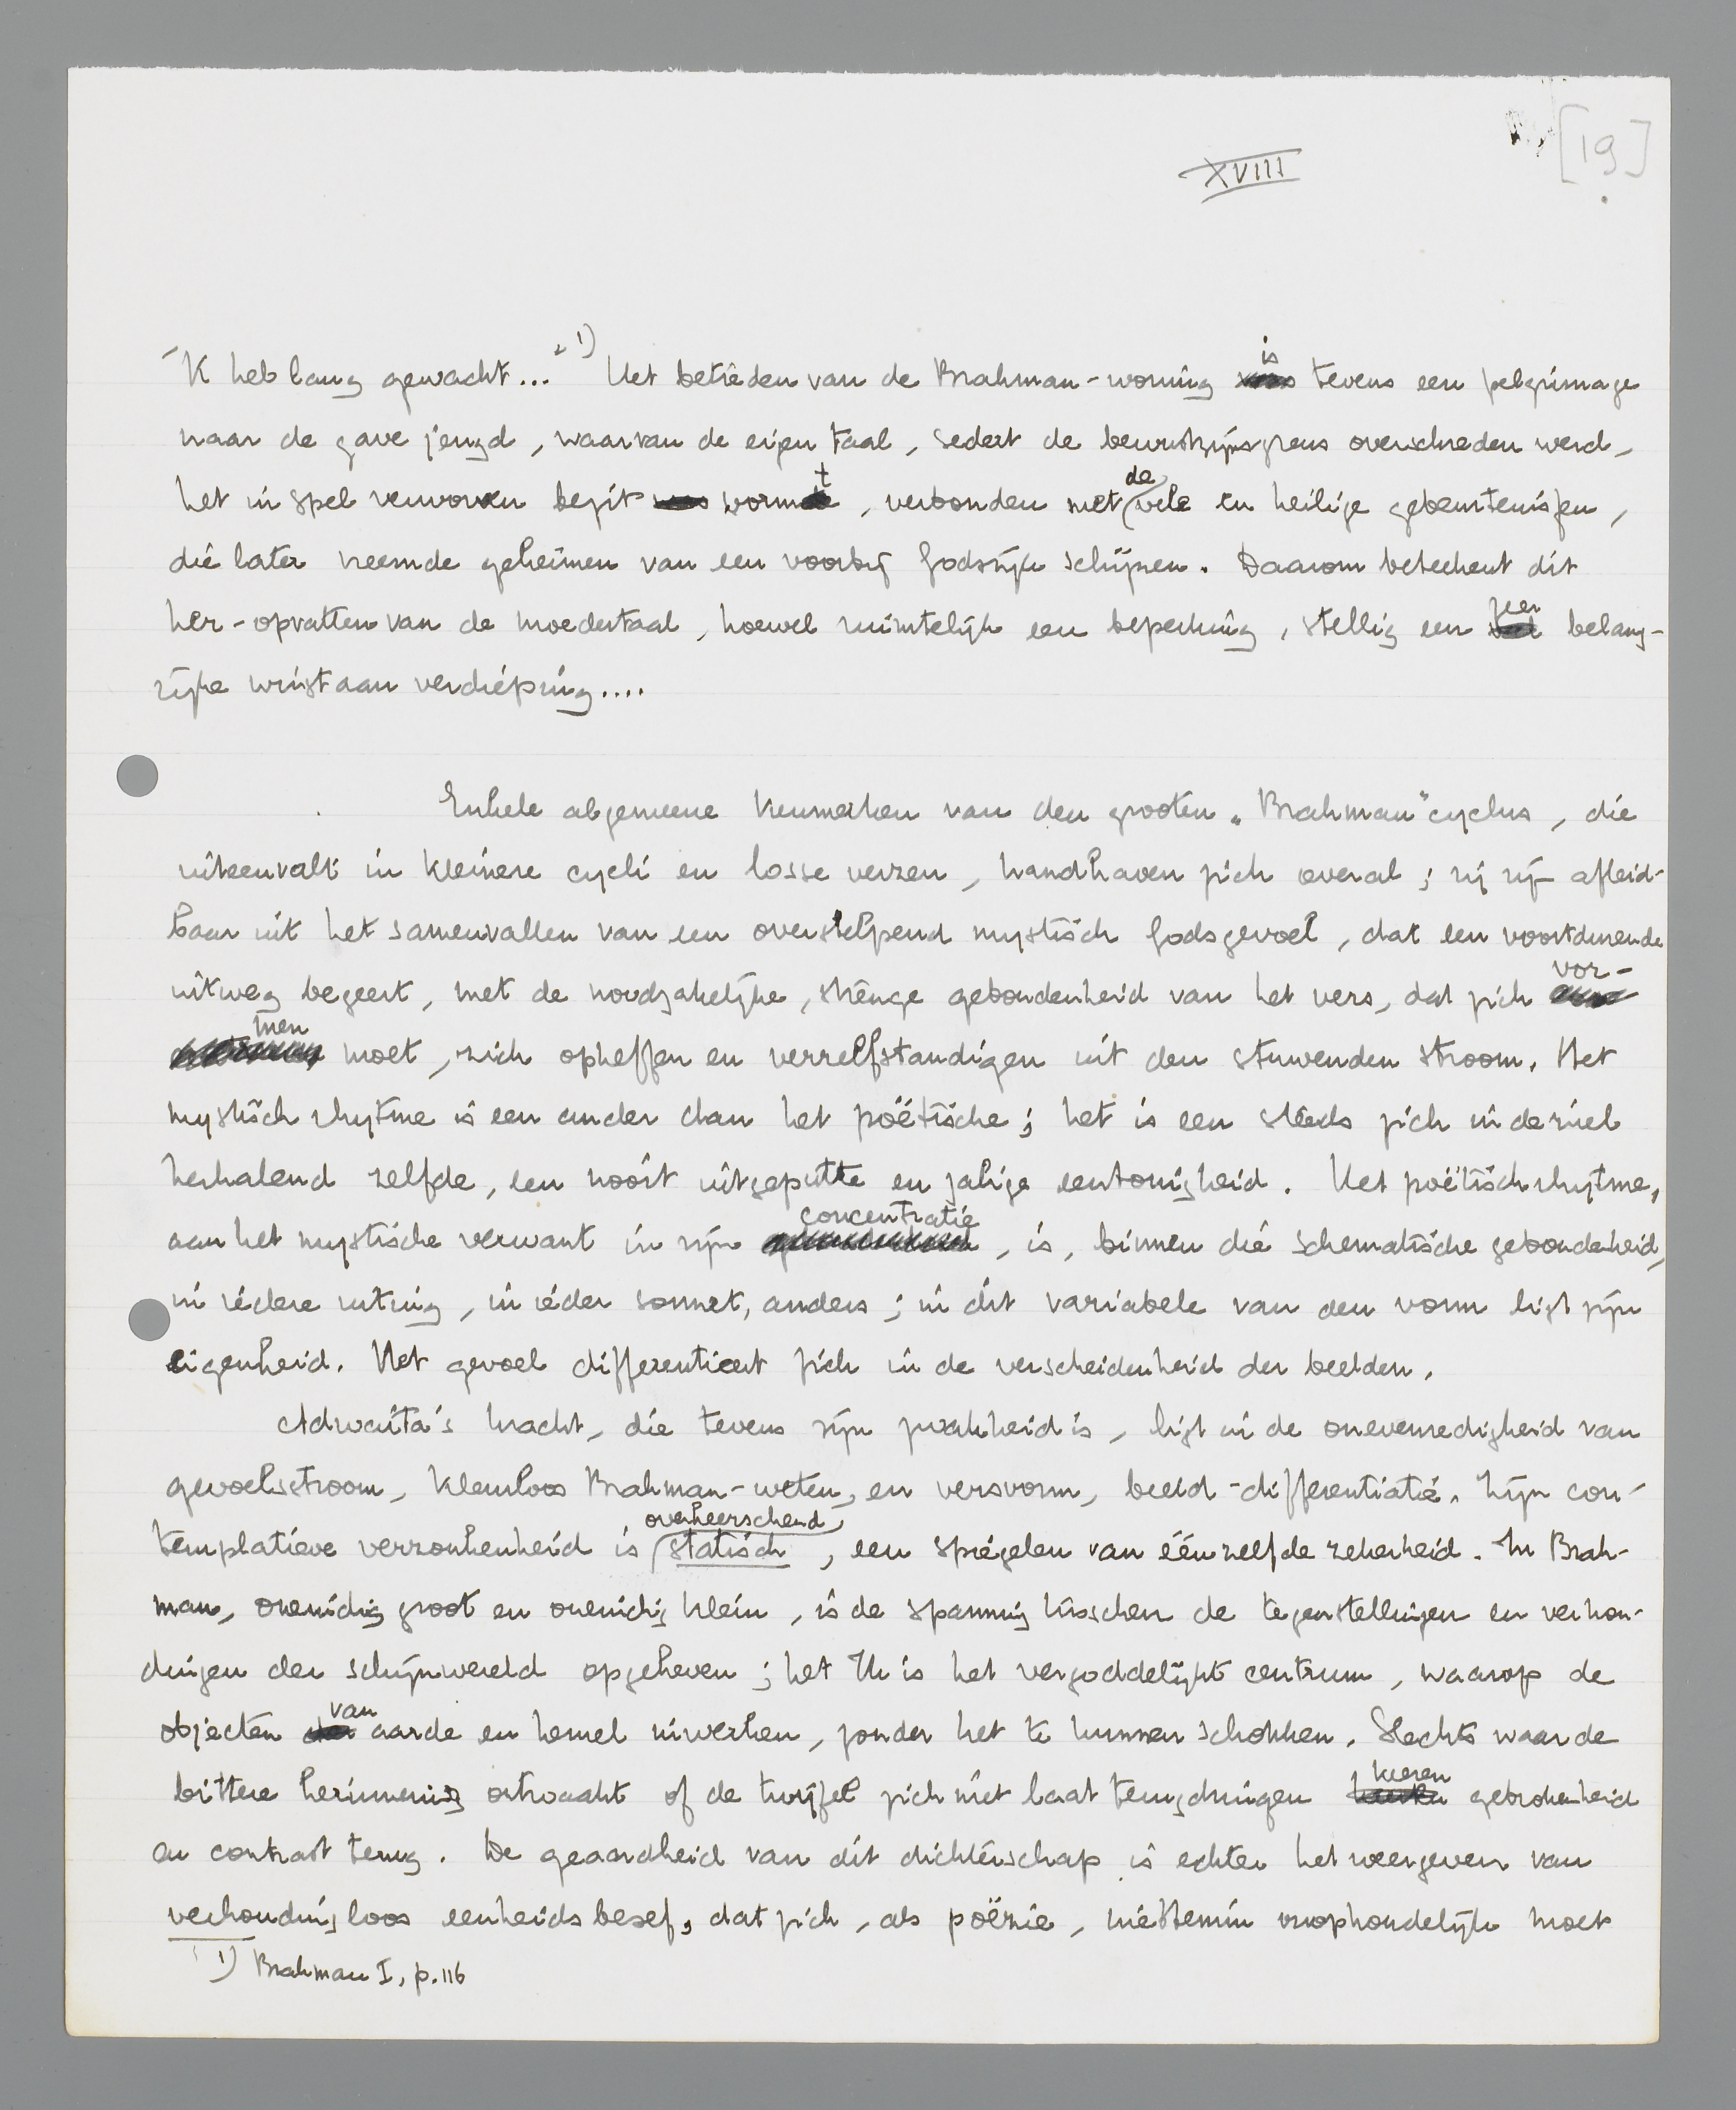 [19]
XVIII
'K heb lang gewacht..." 1) Het betreden van de Brahman-woning is tevens een pelgrimage
naar de gave jeugd, waarvan de eigen taal, sedert de bewustzijnsgrens overschreden werd,
het in spel verworven bezit vormt, verbonden met de vele en heilige gebeurtenissen,
die later vreemde geheimen van een voorbij godsrijk schijnen. Daarom beteekent dit
her-opvatten van de moedertaal, hoewel ruimtelijk een beperking, stellig een zeer belang-
rijke winst aan verdieping....
Enkele algemeene kenmerken van den grooten „Brahman" cyclus, die
uiteenvalt in kleinere cycli en losse verzen, handhaven zich overal; zij zijn afleid-
baar uit het samenvallen van een overstelpend mystisch godsgevoel, dat een voortdurende
uitweg begeert, met de noodzakelijke, strenge gebondenheid van het vers, dat zich vor-
men moet, zich opheffen en verzelfstandigen uit den stuwenden stroom. Het
mystisch rhytme is een ander dan het poëtische; het is een steeds zich in de ziel
herhalend zelfde, een nooit uitgeputte en zalige eentonigheid. Het poëtisch rhytme,
aan het mystische verwant in zijn concentratie, is, binnen die schematische gebondenheid,
in iedere uiting, in ieder sonnet, anders; in dit variabele van den vorm ligt zijn
eigenheid. Het gevoel differentieert zich in de verscheidenheid der beelden.
Adwaita's kracht, die tevens zijn zwakheid is, ligt in de onevenredigheid van
gevoelsstroom, klankloos Brahman-weten, en versvorm, beeld-differentiatie. Zijn con-
templatieve verzonkenheid is overheerschend statisch, een spiegelen van éénzelfde zekerheid. In Brah-
man, oneindig groot en oneindig klein, is de spanning tusschen de tegenstellingen en verhou-
dingen der schijnwereld opgeheven; het Ik is het vergoddelijkt centrum, waarop de
objecten van aarde en hemel inwerken, zonder het te kunnen schokken. Slechts waar de
bittere herinnering ontwaakt of de twijfel zich niet laat terugdringen keeren gebrokenheid
en contrast terug. De geaardheid van dit dichterschap is echter het weergeven van
verhoudingloos eenheidsbesef, dat zich, als poëzie, niettemin onophoudelijk moet
1) Brahman I, p. 116